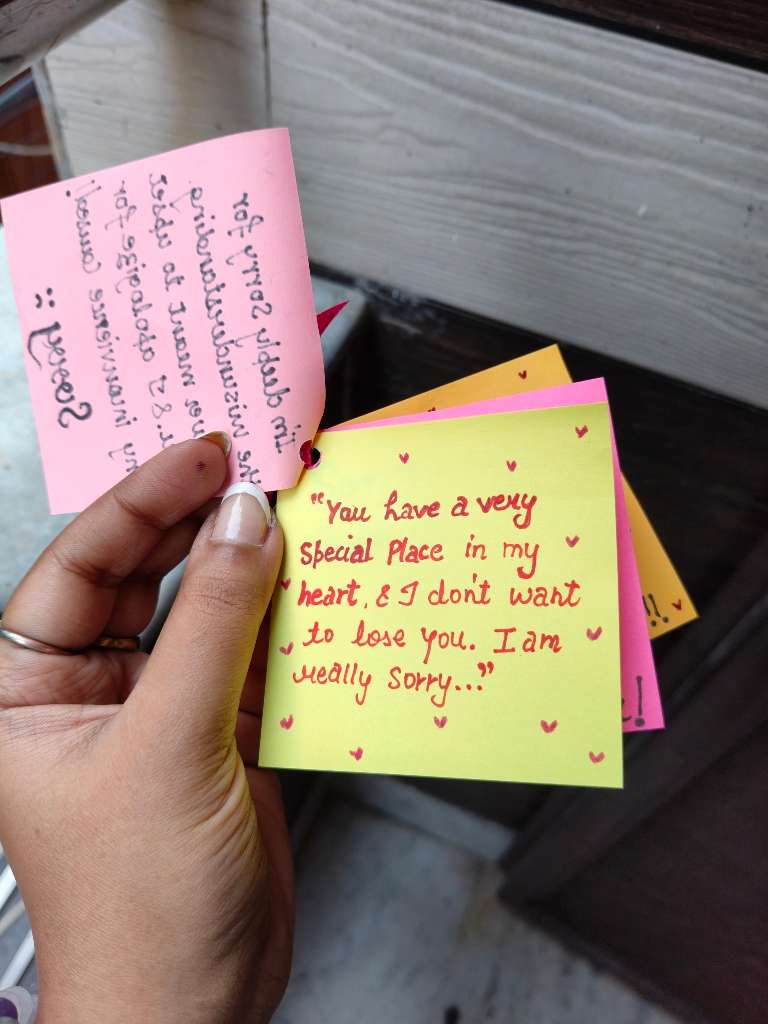 I'm deeply Sorry for
the misunderstanding
meant to upset
& I apologize for
inconvience caused!
Sorry
"You have a very
Special Place in my
heart, & I don't want
to lose you. I am
really sorry..."
!!
!